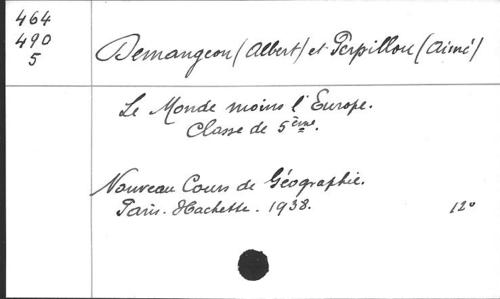 464
490
5
Demangeon (Albert) et Perpillou (Aimé)
Le Monde moins l'Europe.
Classe de 5ème.
Nouveau Cours de Géographie.
Paris. Hachette. 1938. 12°